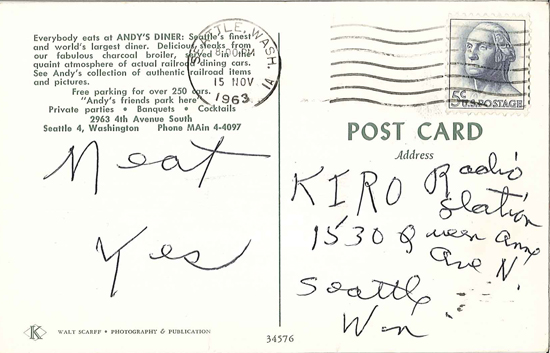 Everybody eats at ANDY'S DINER: Seattle's finest
and world's largest diner. Delicious steaks from
our fabulous charcoal broiler, served in the
quaint atmosphere of actual railroad dining cars.
See Andy's collection of authentic railroad items
and pictures.
Free parking for over 250 cars.
"Andy's friends park here"
Private parties • Banquets • Cocktails
2963 4th Avenue South
Seattle 4, Washington Phone MAin 4-4097
SEATTLE, WASH.
PM
15 NOV
1963
1A
5¢ U.S. POSTAGE
POST CARD
Address
Neat
Yes
KIRO Radio
Station
1530 Queen Anne
Ave N.
Seattle
Wn
K
WALT SCARFF • PHOTOGRAPHY & PUBLICATION
34576